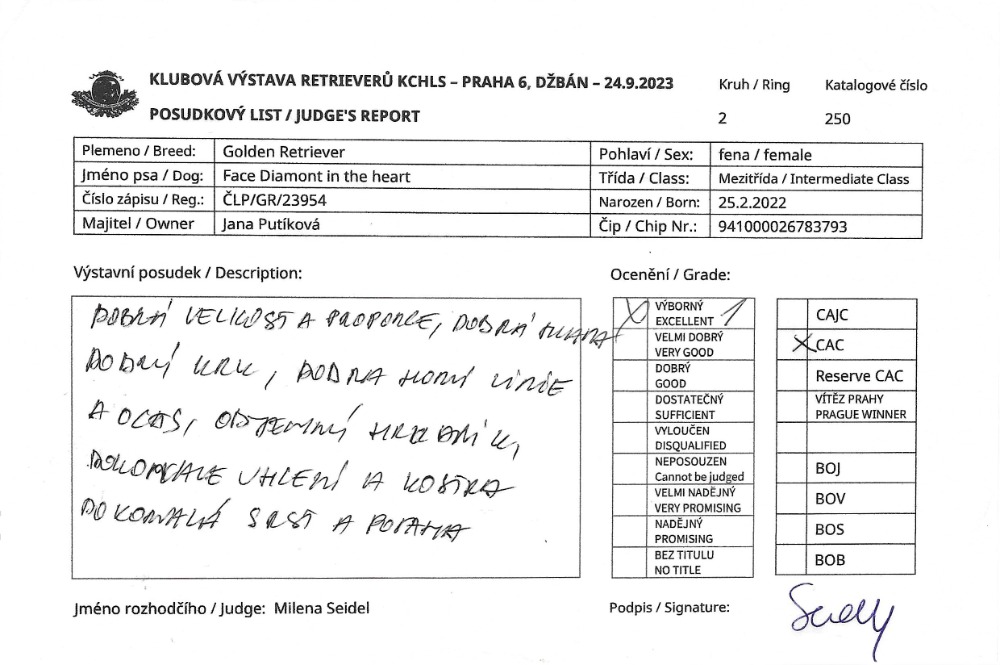 KLUBOVÁ VÝSTAVA RETRIEVERŮ KCHLS – PRAHA 6, DŽBÁN – 24.9.2023
Kruh / Ring
Katalogové číslo
POSUDKOVÝ LIST / JUDGE'S REPORT
2
250
Plemeno / Breed: Golden Retriever
Pohlaví / Sex: fena / female
Jméno psa / Dog: Face Diamont in the heart
Třída / Class: Mezitřída / Intermediate Class
Číslo zápisu / Reg.: ČLP/GR/23954
Narozen / Born: 25.2.2022
Majitel / Owner Jana Putíková
Čip / Chip Nr.: 941000026783793
Výstavní posudek / Description:
DOBRÁ VELIKOST A PROPORCE, DOBRÁ HLAVA
DOBRÝ KRK, DOBRA HORNÍ LINIE
A OCAS, OBJEMNÝ HRUDNÍK,
DOKONALE UHLENÍ A KOSTRA
DOKONALÁ SRST A POVAHA
Ocenění / Grade:
X VÝBORNÝ
EXCELLENT 1
VELMI DOBRÝ
VERY GOOD
DOBRÝ
GOOD
DOSTATEČNÝ
SUFFICIENT
VYLOUČEN
DISQUALIFIED
NEPOSOUZEN
Cannot be judged
VELMI NADĚJNÝ
VERY PROMISING
NADĚJNÝ
PROMISING
BEZ TITULU
NO TITLE
CAJC
X CAC
Reserve CAC
VÍTĚZ PRAHY
PRAGUE WINNER
BOJ
BOV
BOS
BOB
Jméno rozhodčího / Judge: Milena Seidel
Podpis / Signature: